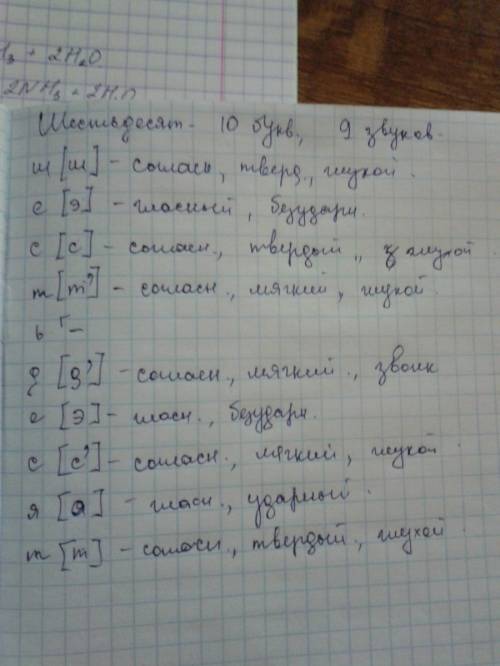 H₃ + 2H₂O
2NH₃ + 2H₂O
Шестьдесят - 10 букв, 9 звуков.
ш [ш] - согласн, тверд., глухой.
е [э] - гласный, безударн.
с [с] - согласн., твердый, глухой.
т [т'] - согласн., мягкий, глухой.
ь -
д [д'] - согласн., мягкий., звонк
е [э] - гласн., безударн.
с [с'] - согласн., мягкий, глухой.
я [а] - гласн., ударный.
т [т] - согласн., твердый., глухой.